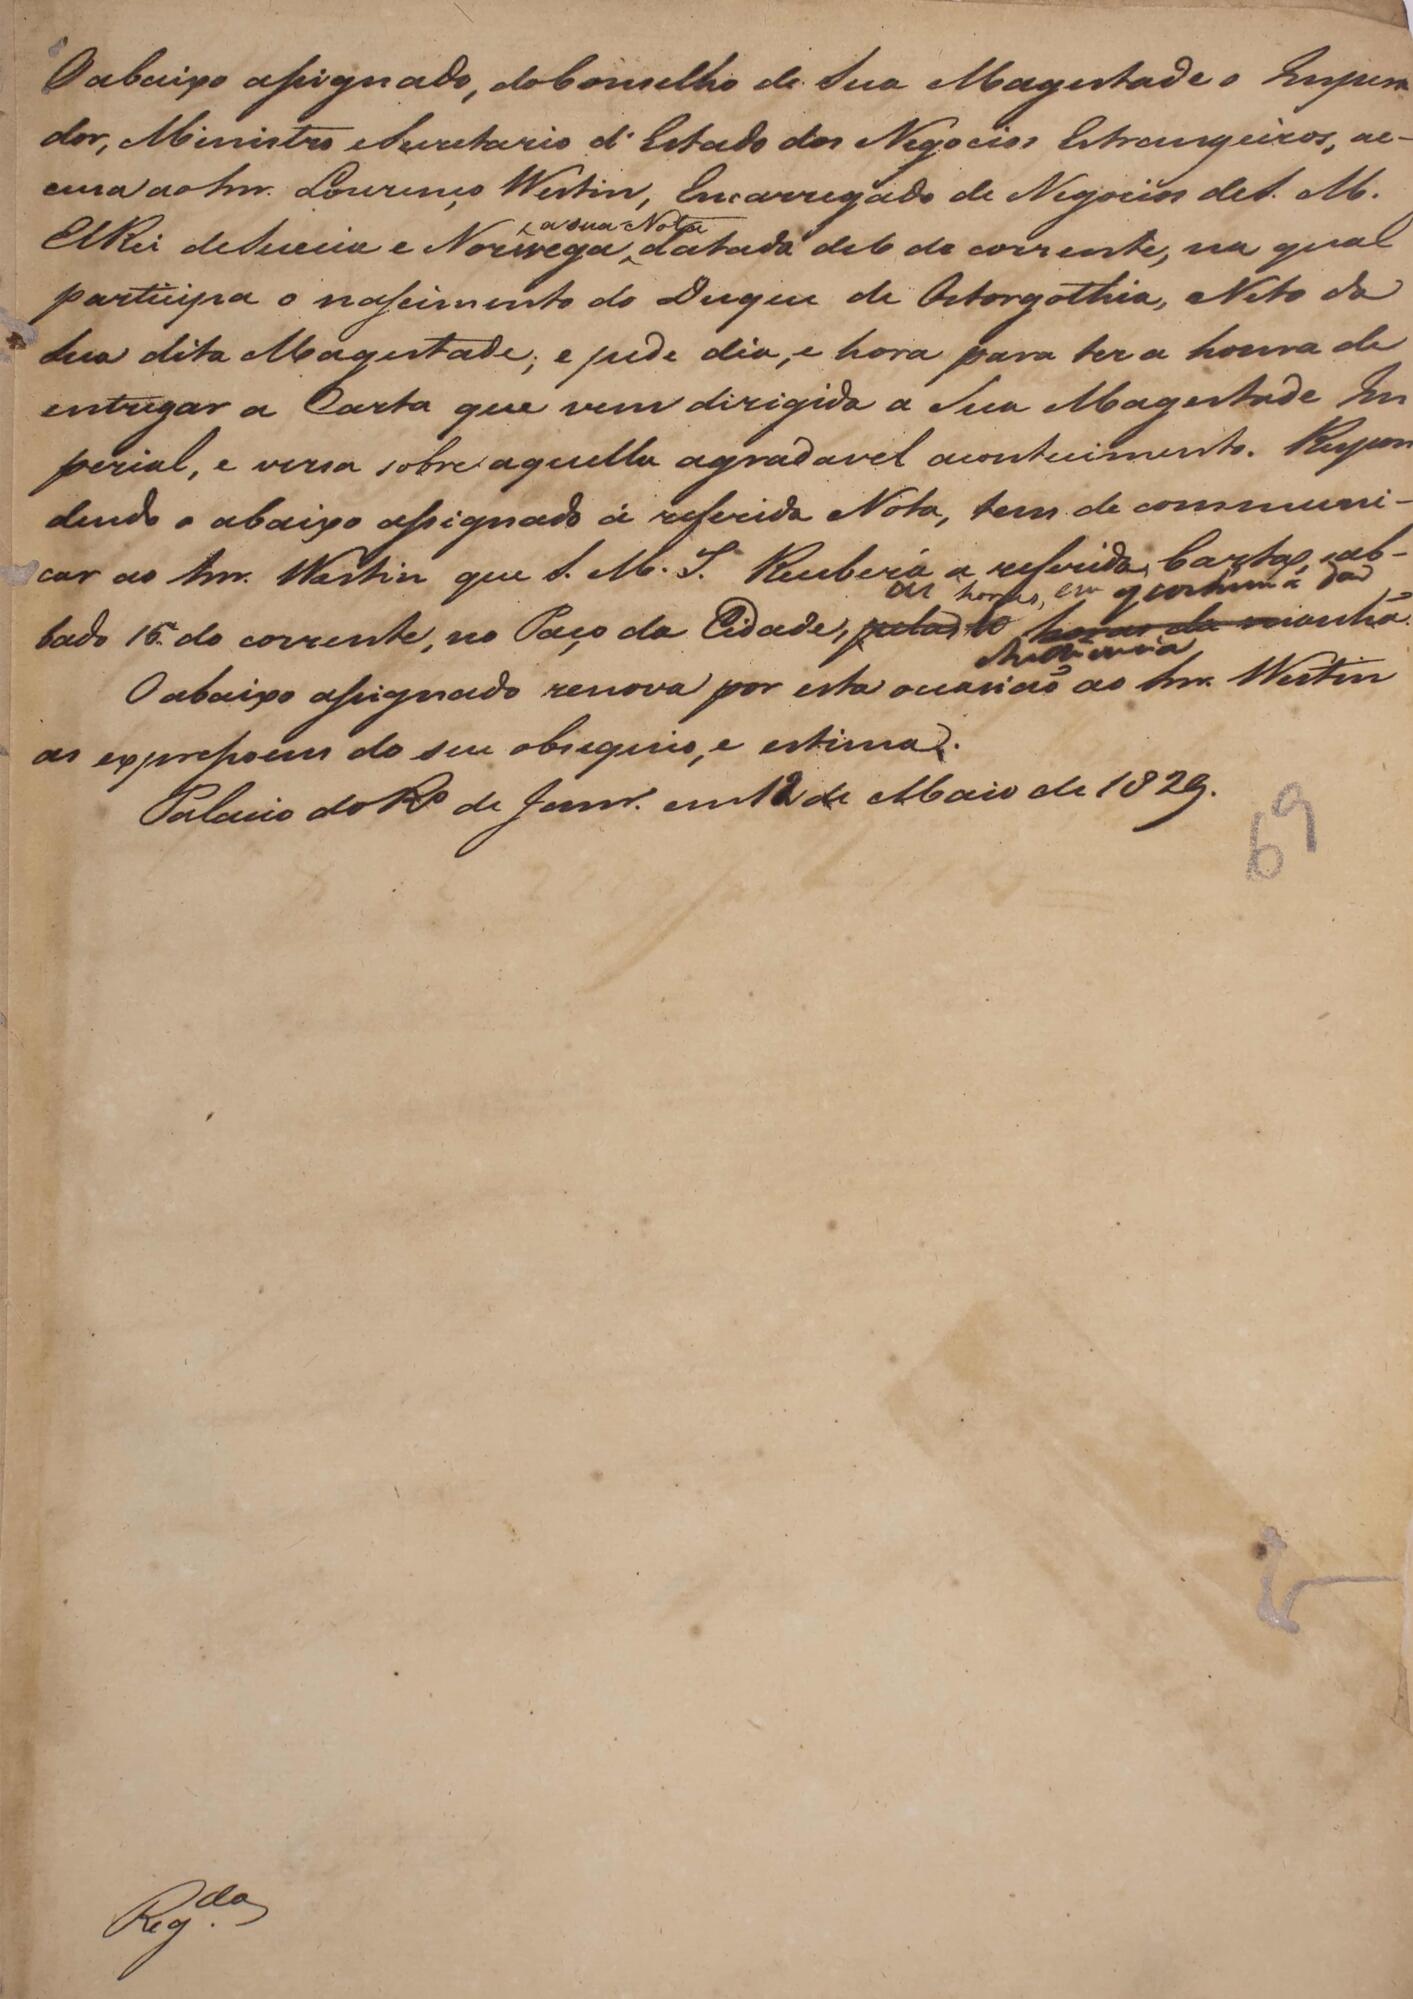 O abaixo assignado, do Conselho de Sua Magestade o Impera
dor, Ministro e Secretario d'Estado dos Negocios Estrangeiros, ac-
cusa ao Snr. Lourenço Westin, Encarregado de Negocios de S. M.
a sua Nota
ElRei de Suecia e Norwega, datada de 6 do corrente, na qual
participa o nascimento do Duque de Ostorgothia, Neto da
Sua dita Magestade, e pede dia, e hora para ter a honra de
entregar a Carta que vem dirigida a Sua Magestade Im
perial, e versa sobre aquelle agradavel acontecimento. Respon
dendo o abaixo assignado á referida Nota, tem de communi-
car ao Snr. Westin que S. M. I. Receberá a referida Carta, sab-
as horas, em q costuma dar
bado 15 do corrente, no Paço da Cidade, pelas 10 horas da manhã.
Audiencia
O abaixo assignado renova por esta occasião ao Snr. Westin
as expressoens do seu obsequio, e estima.
Palacio do Rº de Janrº. em 12 de Maio de 1829.
69
Regda.